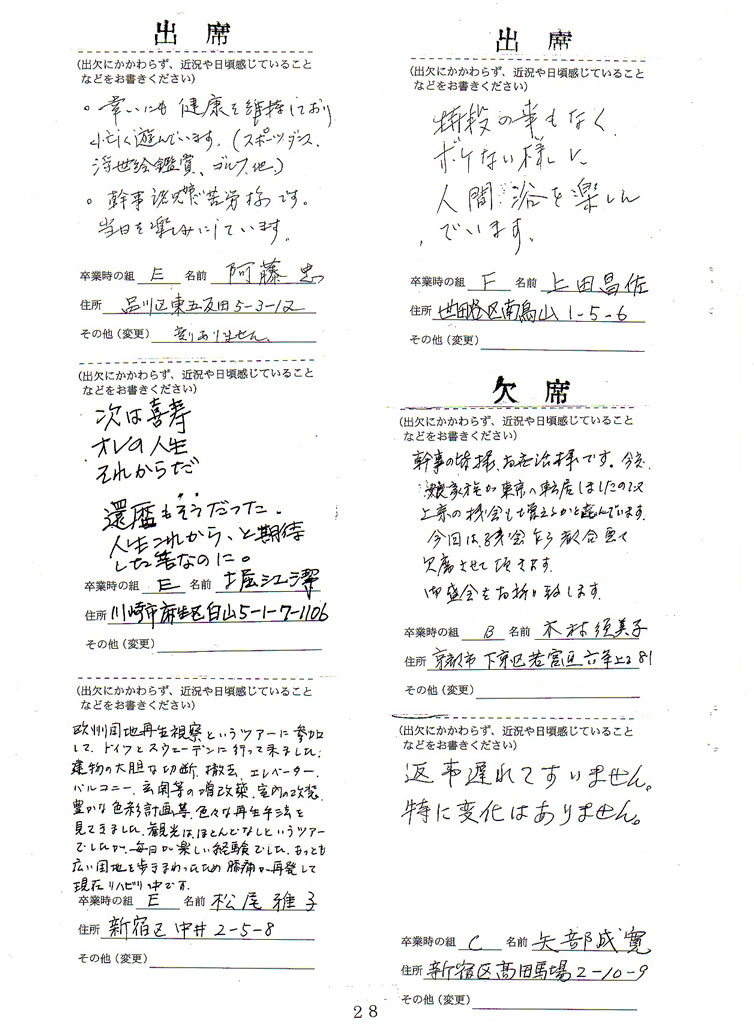 出席
(出欠にかかわらず、近況や日頃感じていること
などをお書きください)
。幸いにも健康を維持しており
忙しく遊んでいます。(スポーツダンス、
浮世絵鑑賞、ゴルフ、他)
。幹事諸兄姉ご苦労様です。
当日を楽しみにしています。
卒業時の組 E 名前 阿藤 忠
住所 品川区東五反田5-3-12
その他(変更) 変りありません。
(出欠にかかわらず、近況や日頃感じていること
などをお書きください)
次は喜寿
オレの人生
それからだ
還暦もそうだった。
人生これから、と期待
した筈なのに。
卒業時の組 E 名前 堀江 潔
住所 川崎市麻生区白山5-1-7-1106
その他(変更)
(出欠にかかわらず、近況や日頃感じていること
などをお書きください)
欧州団地再生視察というツアーに参加
して、ドイツとスウェーデンに行って来ました。
建物の大胆な切断、撤去、エレベーター、
バルコニー、玄関等の増改築、室内の改装、
豊かな色彩計画等、色々な再生手法を
見てきました。観光はほとんどなしというツアー
でしたが、毎日が楽しい経験でした。もっとも
広い団地を歩きまわったため膝痛が再発して
現在リハビリ中です。
卒業時の組 E 名前 松尾 雅子
住所 新宿区中井2-5-8
その他(変更)
出席
(出欠にかかわらず、近況や日頃感じていること
などをお書きください)
特段の事もなく
ボケない様に
人間浴を楽しん
でいます。
卒業時の組 F 名前 上田昌佐
住所 世田谷区南烏山1-5-6
その他(変更)
欠席
(出欠にかかわらず、近況や日頃感じていること
などをお書きください)
幹事の皆様、お世話様です。今夏
娘家族が東京へ転居しましたので
上京の機会も増えるかと喜んでいます。
今回は、残念乍ら都合悪く
欠席させて頂きます。
御盛会をお祈り致します。
卒業時の組 B 名前 木村須美子
住所 京都市下京区若宮 六条上ル 81
その他(変更)
(出欠にかかわらず、近況や日頃感じていること
などをお書きください)
返事遅れてすいません。
特に変化はありません。
卒業時の組 C 名前 矢部成寛
住所 新宿区高田馬場2-10-9
その他(変更)
28